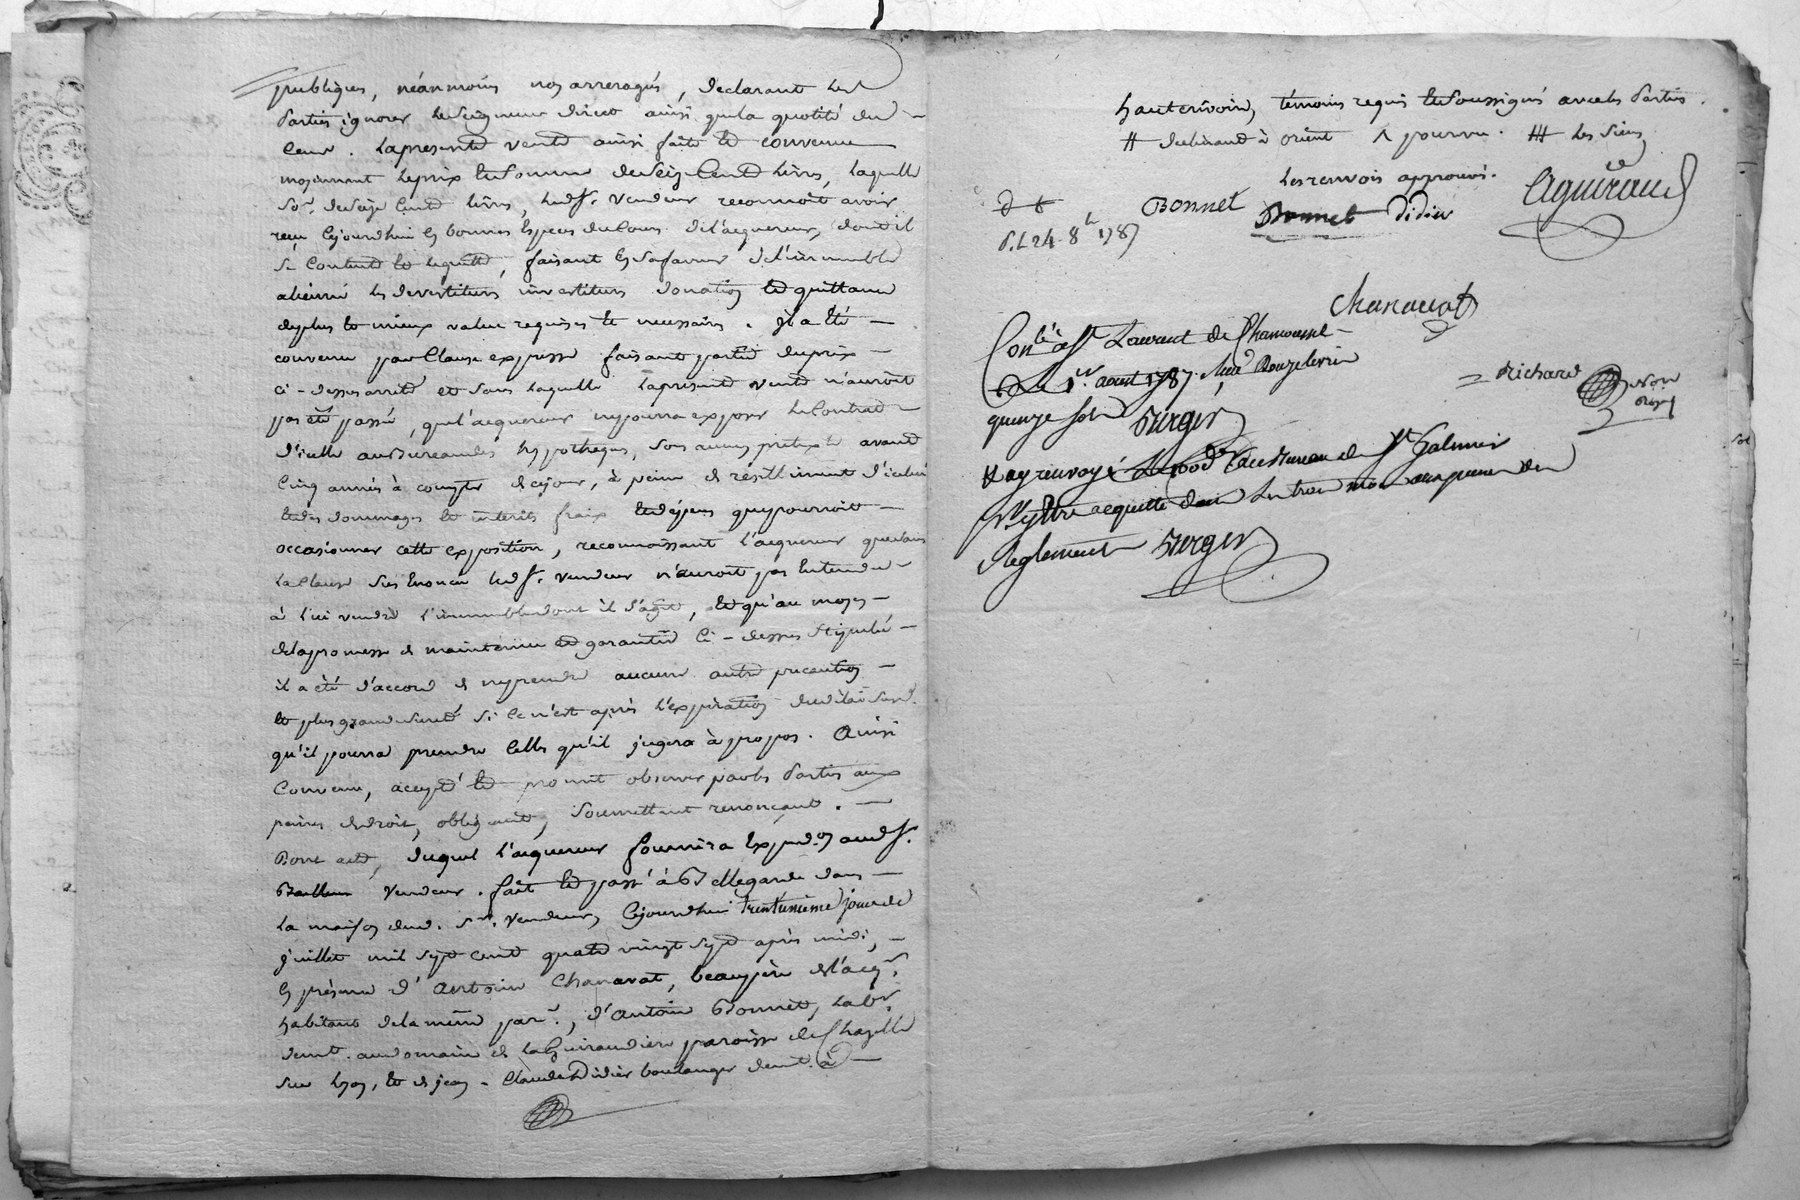 publiques, néanmoins nos arreragés, declarant les
parties ignorer le seigneur direct ainsi que la quotité du
Cens. La presente vente ainsi faite et convenue
moyennant le prix et somme de seize Cent Livres, laquelle
so.e de seize Cent livres, led. sr. vendeur reconnoit avoir
reçu cejourdhui en bonnes Especes du Cours de l'acquereur, dont il
se Contente et le quitte, faisant en sa faveur de l'immeuble
alienné les devestitures investitures donation et quittance
de plus et mieux value requises et necessaires. Il a été
convenu par Clause expresse faisant partie du prix
ci-dessus arrêté et sans laquelle la presente vente n'auroit
pas été passée, que l'acquereur ne pourra exposer le Contrat
d'icelle au Bureau des hypotheques, sous aucun pretexte avant
Cinq années à compter de ce jour, à peine de résiliment d'icelui
et des dommages et interêts fraix et dépens que pourroit
occasionner cette exposition, reconnoissant l'acquereur que sans
la Clause sus énoncée led. sr. vendeur n'auroit pas entendu
à lui vendre l'immeuble dont il s'agit, et qu'au moyen
de la promesse de maintenue et garantie ci-dessus stipulée
il a été d'accord de ne prendre aucune autre precaution
et plus grande sureté si ce n'est après l'expiration du délai susd.
qu'il pourra prendre celles qu'il jugera à propos. Ainsi
Convenu, accepté et promit observer par les Parties aux
peines de droit, obligeant, soumettant renonçant.
Dont acte, duquel l'acquereur fournira Expedon aud. sr.
vendeur. fait et passé à Bellegarde dans
la maison dud. sr. vendeur, cejourdhui trente unieme jour de
juillet mil sept cent quatre vingt sept après midi,
en présence d'Antoine Chanavat, beaupère de l'acqr.
habitant de la même parr.e, d'Antoine Bonnet, labr.
demt. au domaine de la Guirandiere paroisse de Chazelle
sur Lyon, et de jean-Claude Didier boulanger demt. à
hauterivoire, témoins requis et soussignés avec les Parties.
# à orient ^ pourvu. ## les siens
les renvois approuvés.
Bonnet Bonnet Didier Aguiraud
24 8bre 1787
Chanavat
Conlé à St Laurent de Chamousset
le 1er aoust 1787. Reçu
quinze sols Berger
Richard
# ay renvoyé le 100e d. au Bureau de St Galmier
pr y être acquitté dans les trois mois aux peines des
Reglement Berger